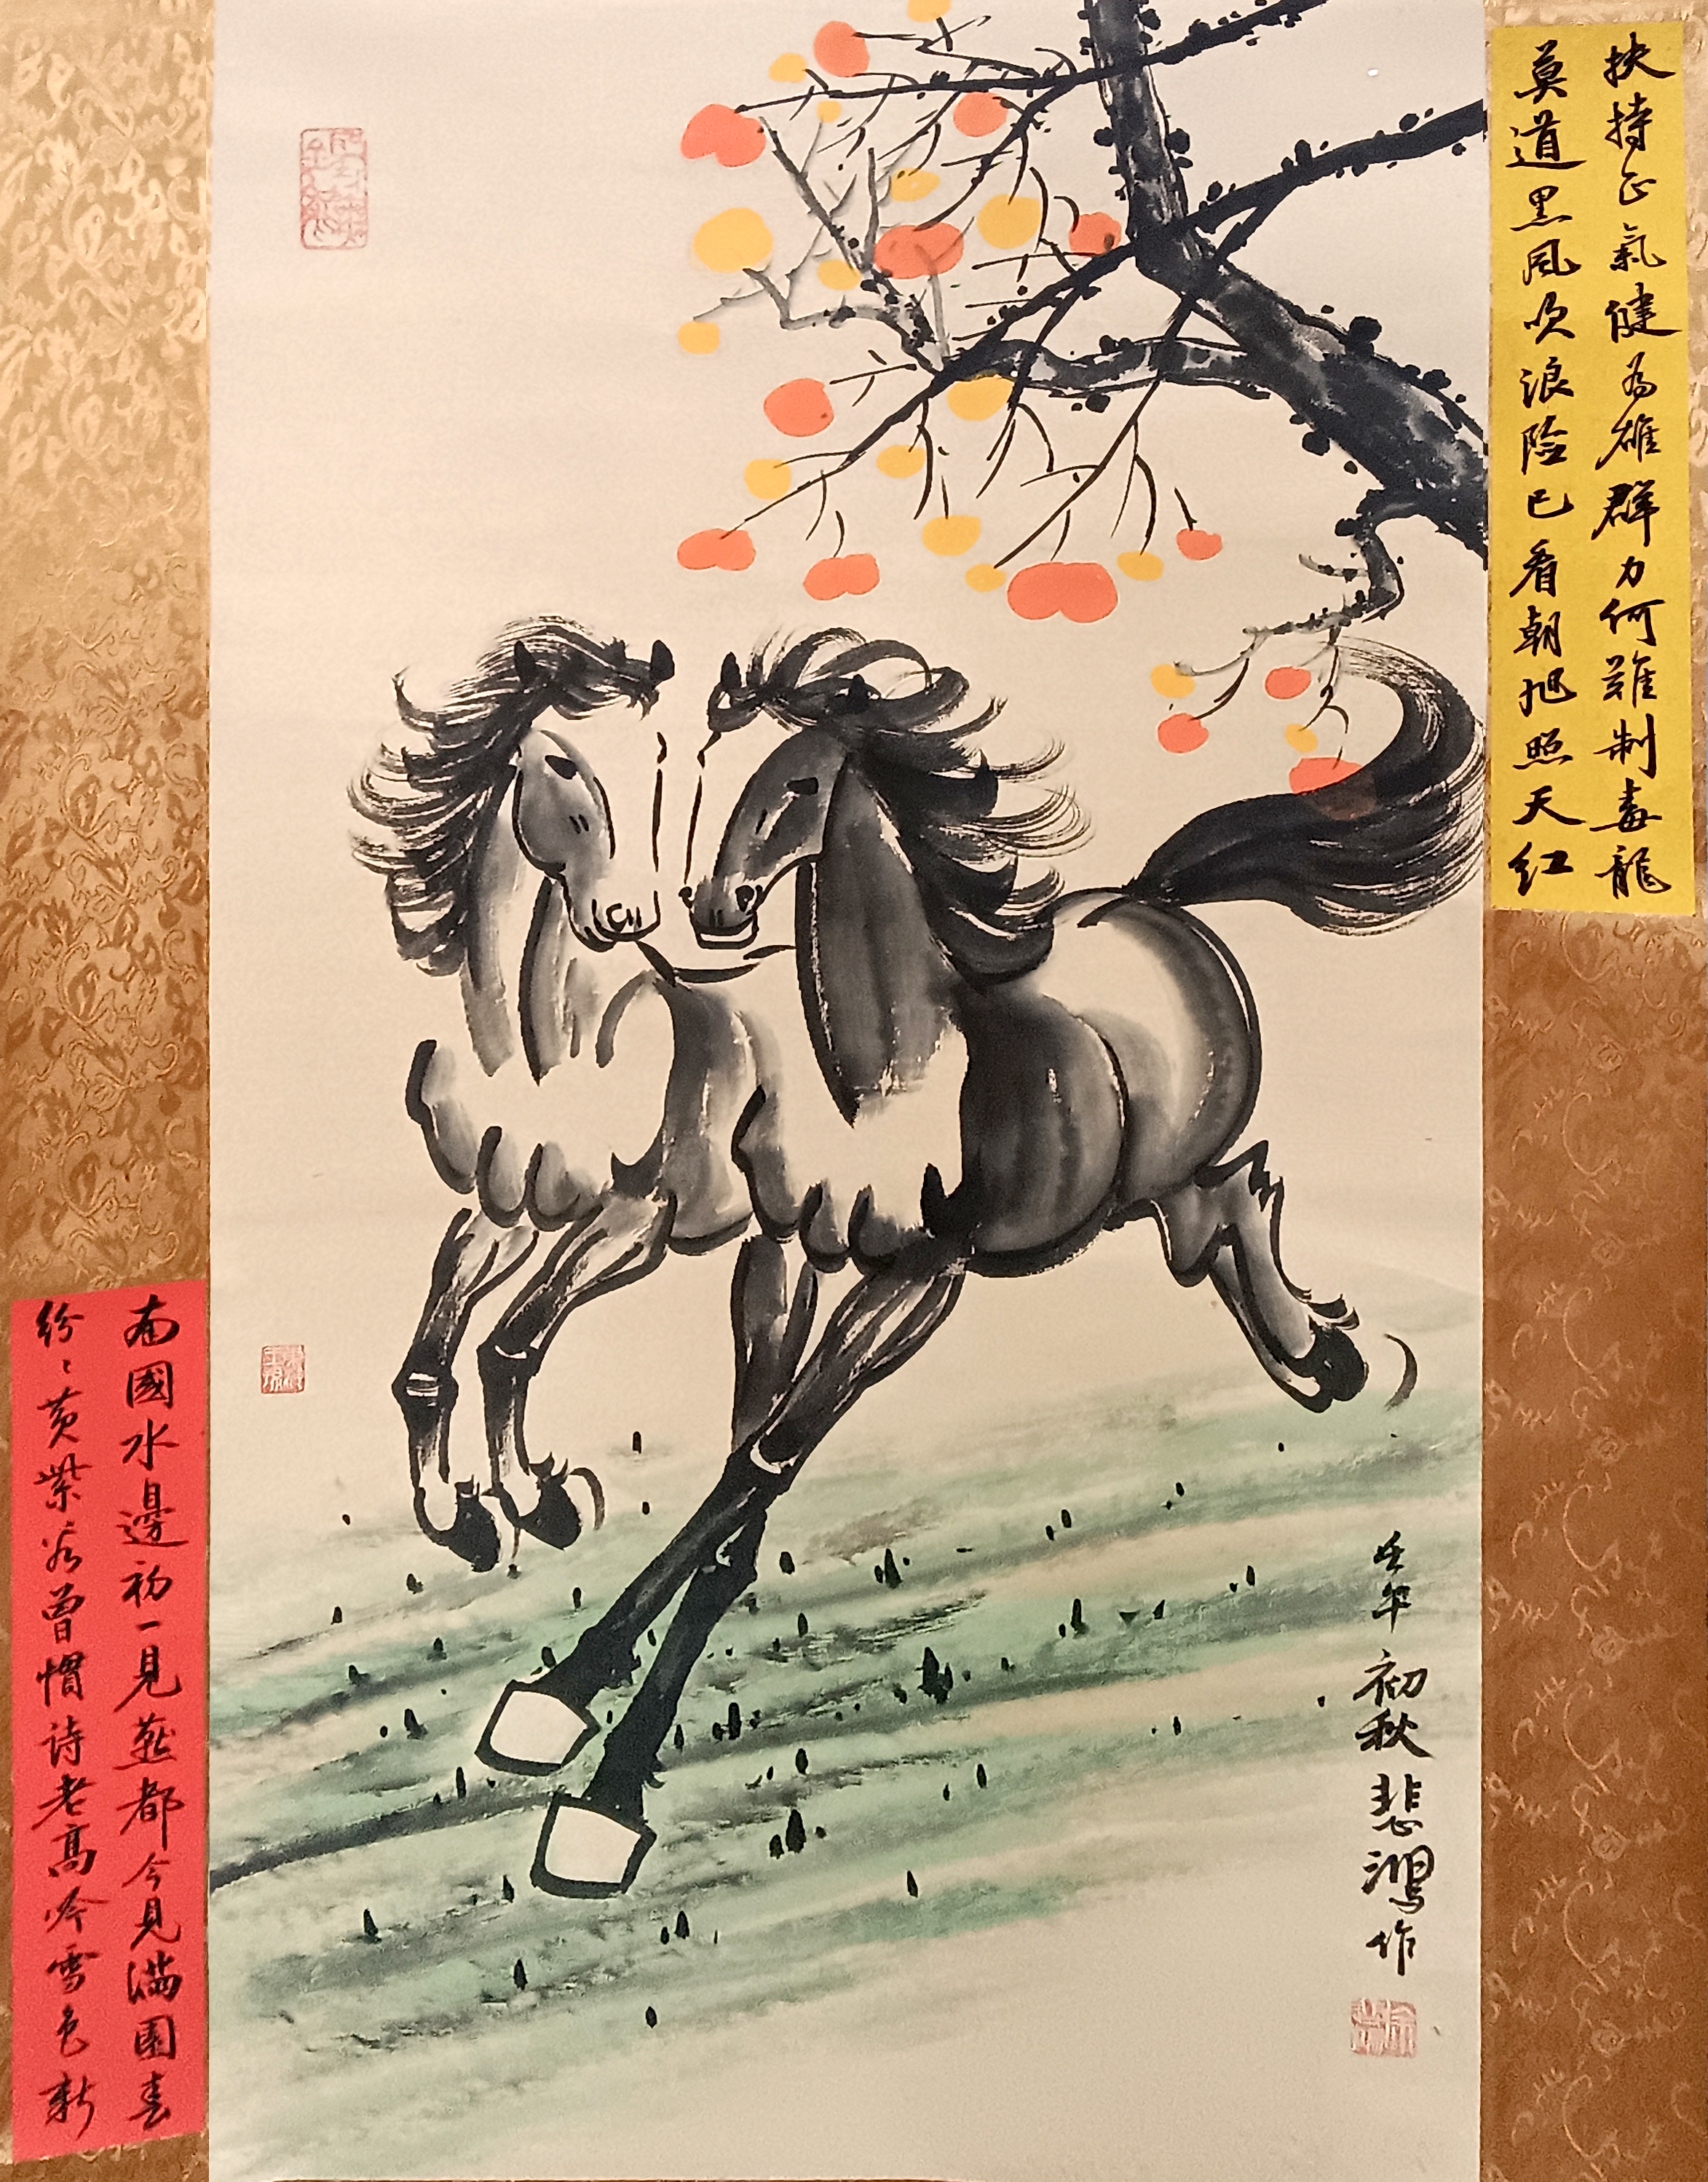 扶持正氣健為雄群力何難制毒龍
莫道黑風吹浪險已看朝旭照天紅
壬午
初秋悲鴻作
南國水邊初一見燕都今見满園春
纷〻黄紫君曾慣诗老高吟雪色新